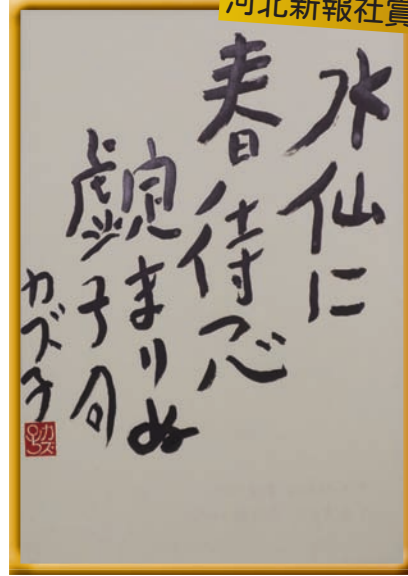 河北新報社賞
水仙に
春待心
定まりぬ
虚子句
カズ子
カズ子